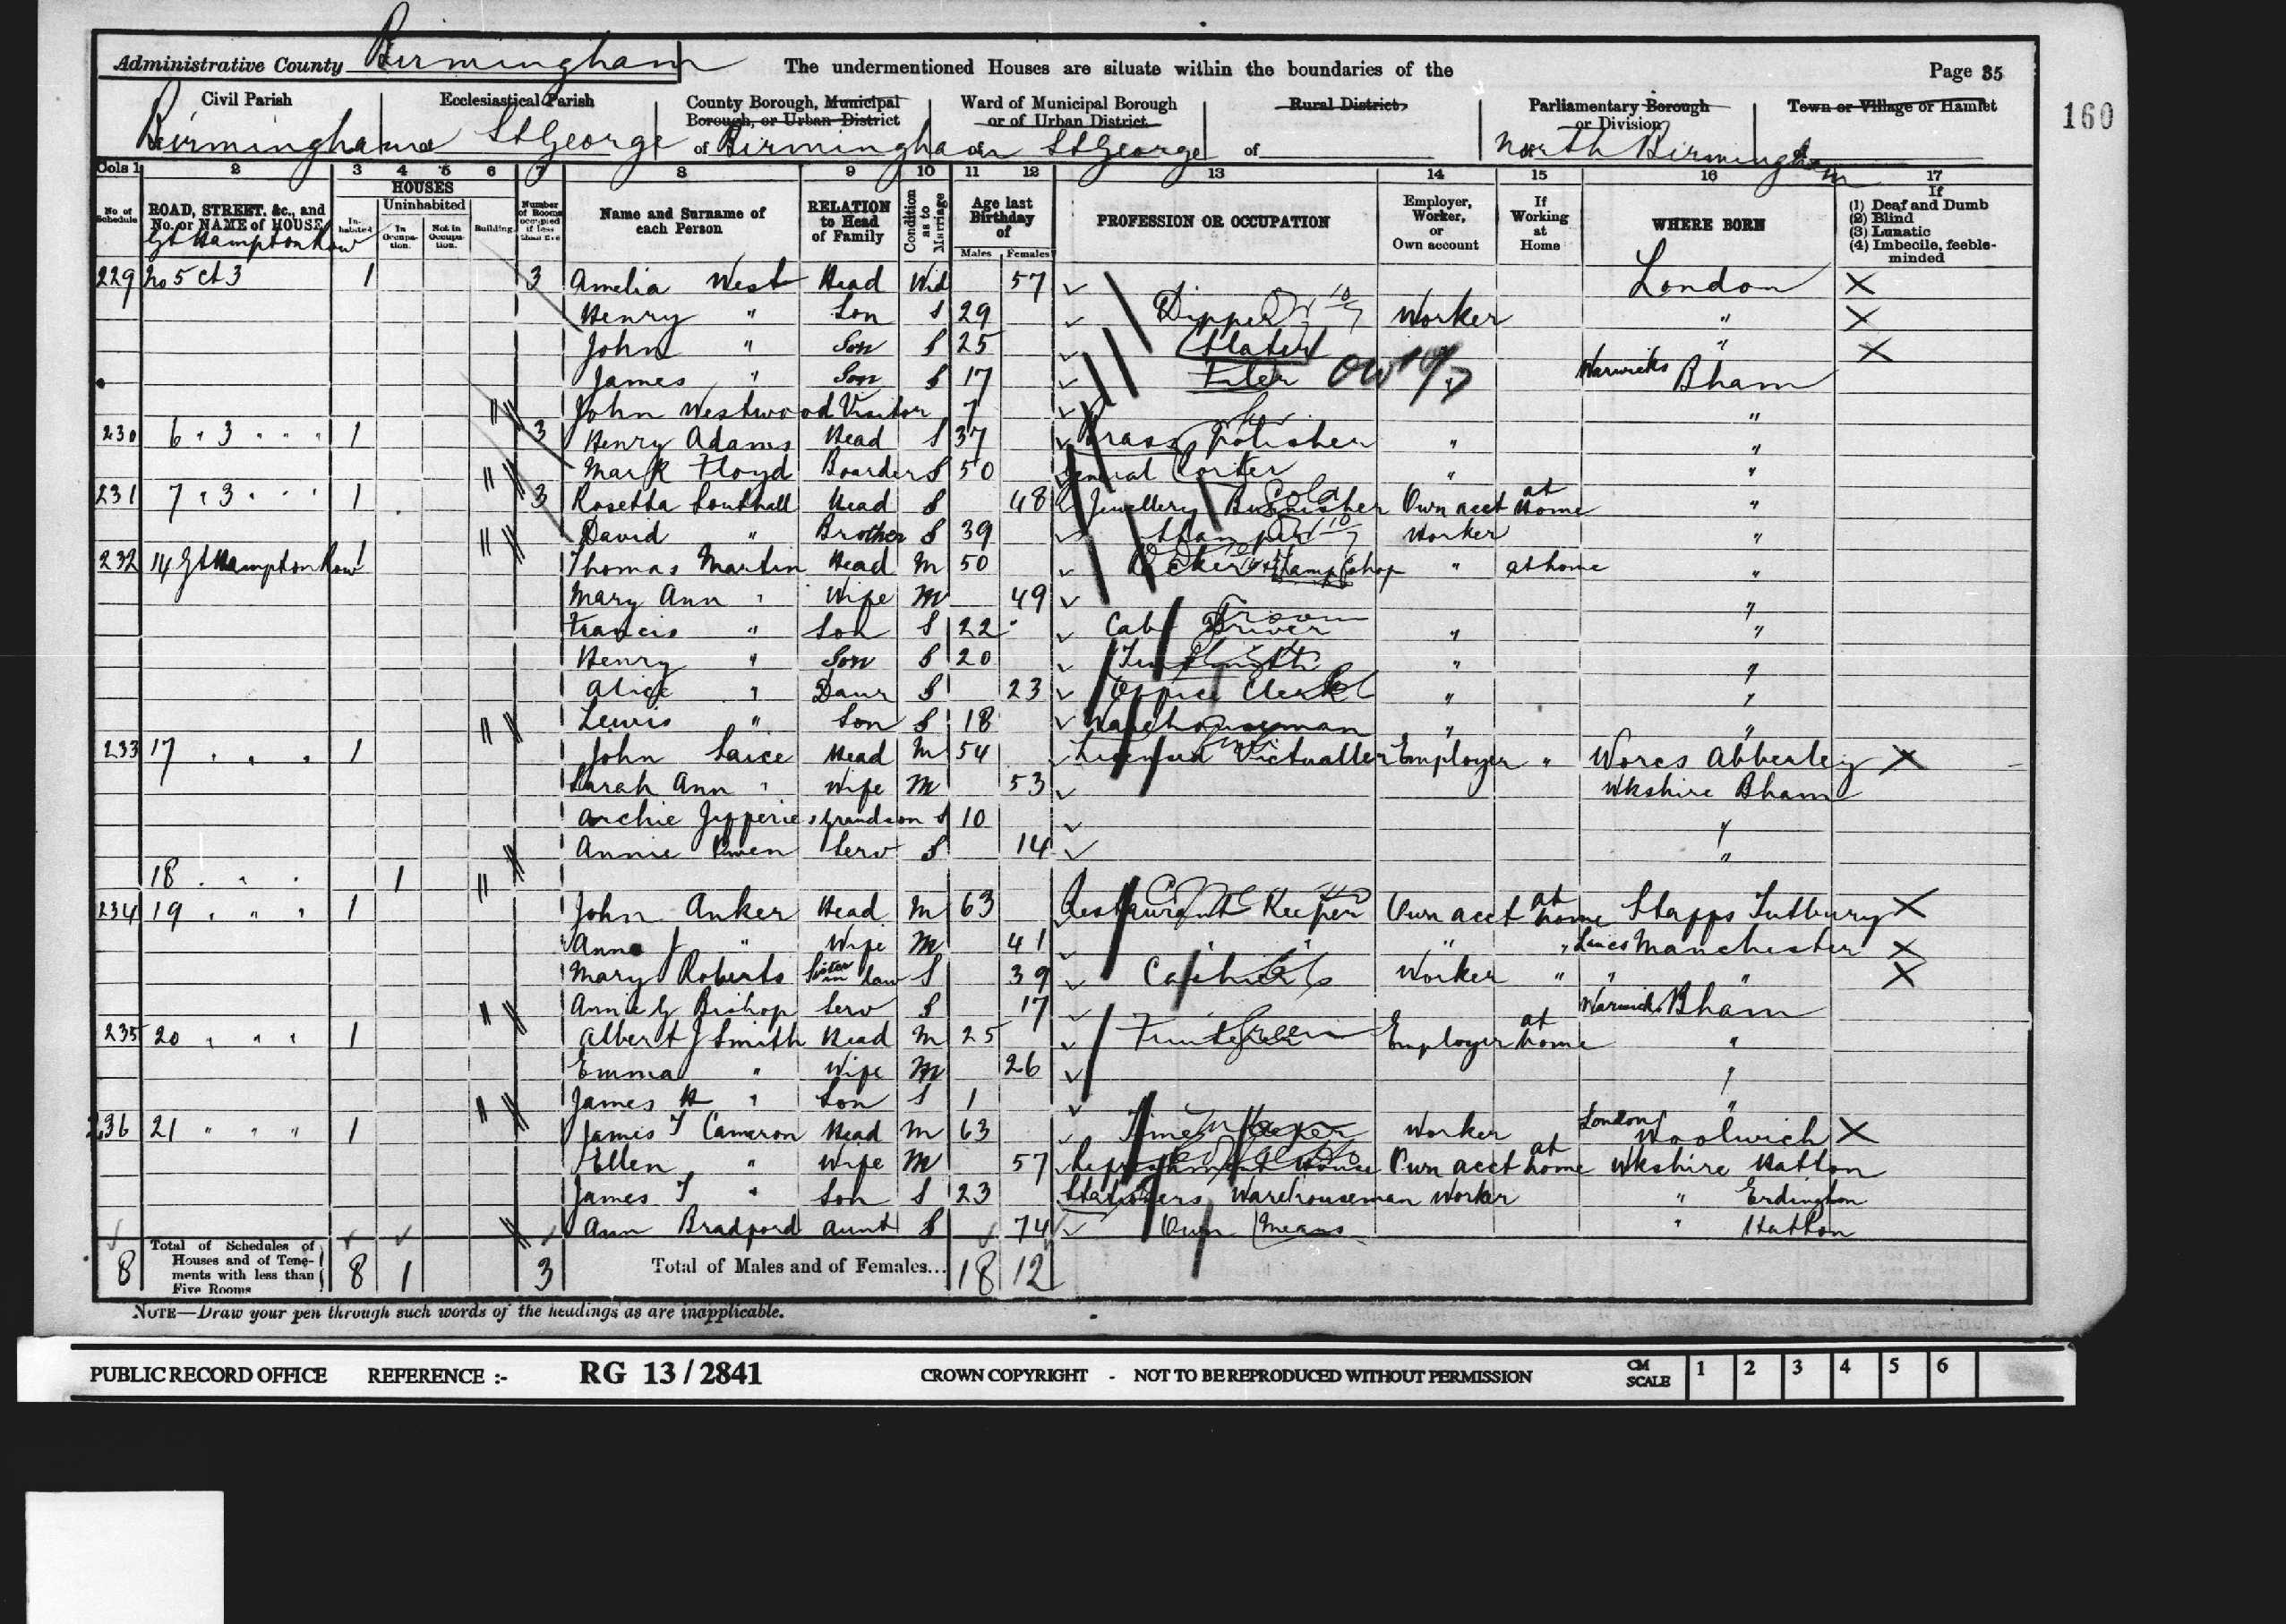 Administrative County Birmingham The undermentioned Houses are situate within the boundaries of the Page 35
160
Civil Parish Ecclesiastical Parish County Borough, Municipal Borough, or Urban District Ward of Municipal Borough or of Urban District Rural District Parliamentary Borough or Division Town or Village or Hamlet
Birmingham St George of Birmingham of St George of North Birmingham
Cols 1 2 3 4 5 6 7 8 9 10 11 12 13 14 15 16 17
No of Schedule ROAD, STREET, &c., and No. or NAME of HOUSE HOUSES Inhabited Uninhabited In Occupation. Not in Occupation. Building Number of Rooms occupied if less than five Name and Surname of each Person RELATION to Head of Family Condition as to Marriage Age last Birthday of Males Females PROFESSION OR OCCUPATION Employer, Worker, or Own account If Working at Home WHERE BORN If (1) Deaf and Dumb (2) Blind (3) Lunatic (4) Imbecile, feeble-minded
Gt Hampton Row
229 No 5 ct 3 1 3 Amelia West Head Wid 57 London X
Henry " Son S 29 Dipper Worker " X
John " Son S 25 " X
James " Son S 17 Filer " Warwicks Bham
John Westwood Visitor 7 "
230 6 " 3 " " " 1 3 Henry Adams Head S 37 Brass Polisher " "
Mark Floyd Boarder S 50 General Porter " "
231 7 " 3 " " " 1 3 Rosetta Southall Head S 48 Jewellery Burnisher Own acct at home "
David " Brother S 39 Stamper Worker "
232 14 Gt Hampton Row 1 Thomas Martin Head M 50 " at home "
Mary Ann " Wife M 49 "
Francis " Son S 22 Cab Driver " "
Henry " Son S 20 " "
Alice " Daur S 23 Office Clerk " "
Lewis " Son S 18 Warehouseman " "
233 17 " " " 1 John Saice Head M 54 Licensed Victualler Employer " Worcs Abberley X
Sarah Ann " Wife M 53 Wkshire Bham
Archie Jefferies Grandson S 10 "
Annie Owen Serv S 14 "
18 " " " 1
234 19 " " " 1 John Anker Head M 63 Restaurant Keeper Own acct at home Staffs Tutbury X
Anne J " Wife M 41 " " " " Lancs Manchester X
Mary Roberts Sister in law S 39 Cashier Worker " " " X
Annie G Bishop Serv S 17 Warwicks Bham
235 20 " " " 1 Albert J Smith Head M 25 Employer at home "
Emma " Wife M 26 "
James H " Son S 1 "
236 21 " " " 1 James T Cameron Head M 63 Time Keeper Worker London Woolwich X
Ellen " Wife M 57 Refreshment House Own acct at home Wkshire Hatton
James T " Son S 23 Stationers Warehouseman Worker " Erdington
Ann Bradford Aunt S 74 Own Means " Hatton
8 Total of Schedules of Houses and of Tenements with less than Five Rooms 8 1 3 Total of Males and of Females... 18 12
NOTE—Draw your pen through such words of the headings as are inapplicable.
PUBLIC RECORD OFFICE REFERENCE :- RG 13/2841 CROWN COPYRIGHT - NOT TO BE REPRODUCED WITHOUT PERMISSION CM SCALE 1 2 3 4 5 6